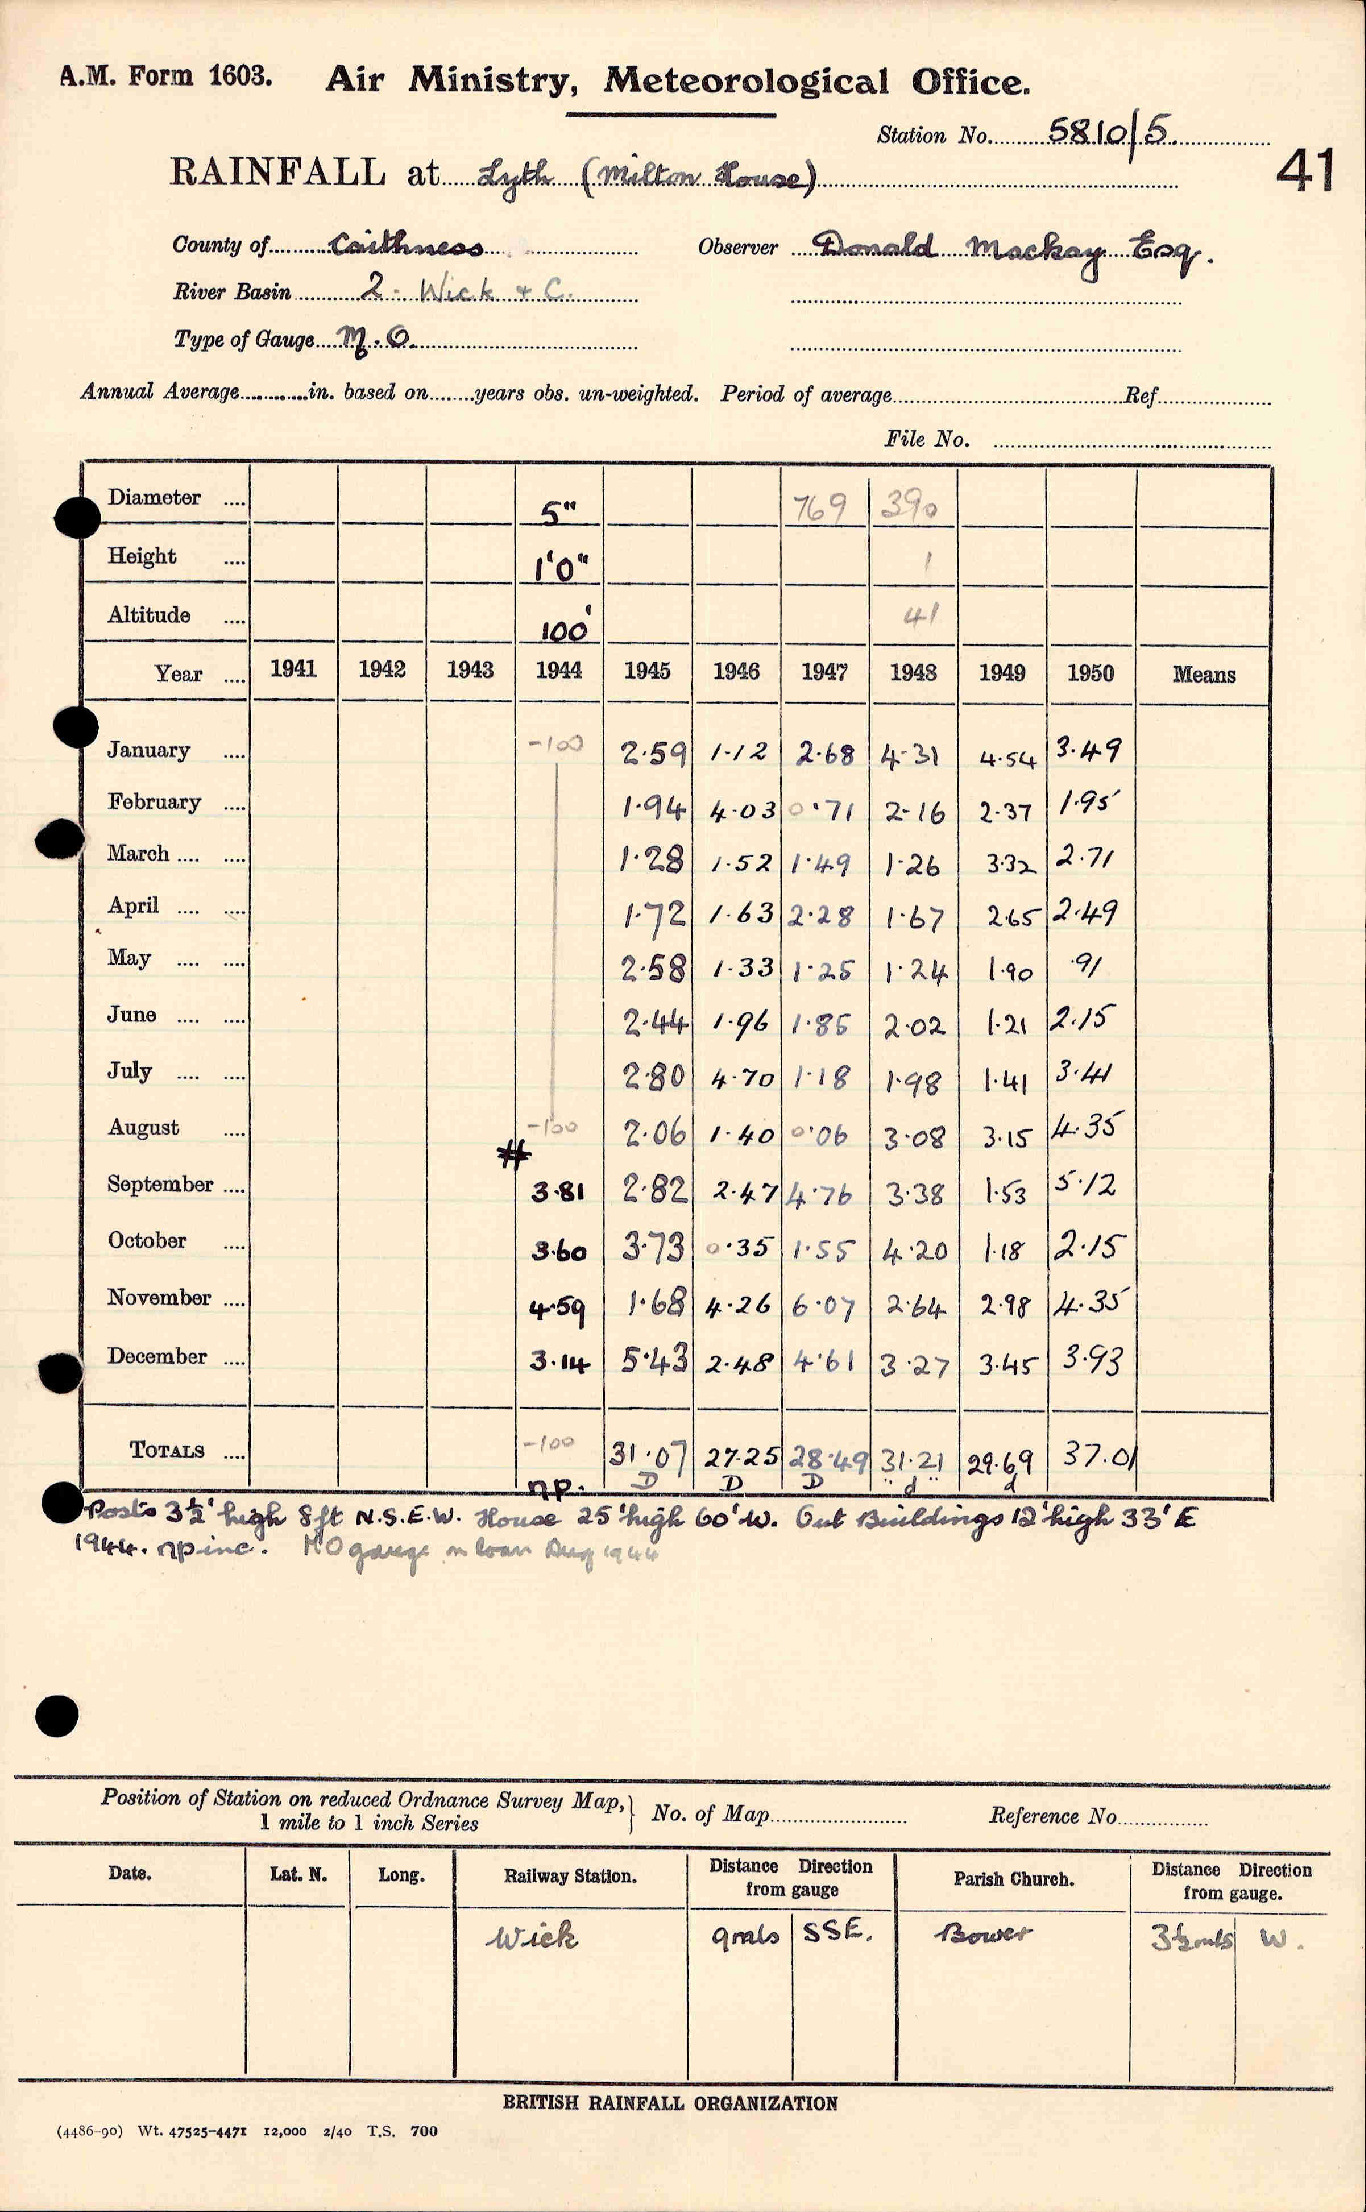 A.M. Form 1603. Air Ministry, Meteorological Office.
Station No. 5810/5.
41
RAINFALL at Lyth (Milton House)
County of Caithness Observer Donald Mackay Esq.
River Basin 2. Wick & C.
Type of Gauge M.O.
Annual Average in. based on years obs. un-weighted. Period of average Ref
File No.
Diameter 5" 769 390
Height 1'0" 1
Altitude 100' 41
Year 1941 1942 1943 1944 1945 1946 1947 1948 1949 1950 Means
January -100 2.59 1.12 2.68 4.31 4.54 3.49
February 1.94 4.03 0.71 2.16 2.37 1.95
March 1.28 1.52 1.49 1.26 3.32 2.71
April 1.72 1.63 2.28 1.67 2.65 2.49
May 2.58 1.33 1.25 1.24 1.90 .91
June 2.44 1.96 1.85 2.02 1.21 2.15
July 2.80 4.70 1.18 1.98 1.41 3.41
August -100 2.06 1.40 0.06 3.08 3.15 4.35
#
September 3.81 2.82 2.47 4.76 3.38 1.53 5.12
October 3.60 3.73 0.35 1.55 4.20 1.18 2.15
November 4.59 1.68 4.26 6.07 2.64 2.98 4.35
December 3.14 5.43 2.48 4.61 3.27 3.45 3.93
TOTALS -100 31.07 27.25 28.49 31.21 29.69 37.01
np. D D D "d" d
Posts 3½' high 8ft N.S.E.W. House 25' high 60' W. Out Buildings 12' high 33' E
1944. np inc. MO gauge on loan Aug 1944
Position of Station on reduced Ordnance Survey Map, 1 mile to 1 inch Series } No. of Map Reference No
Date. Lat. N. Long. Railway Station. Distance Direction from gauge Parish Church. Distance Direction from gauge.
Wick 9mls SSE. Bower 3½mls W.
BRITISH RAINFALL ORGANIZATION
(4486-90) Wt. 47525-4471 12,000 2/40 T.S. 700